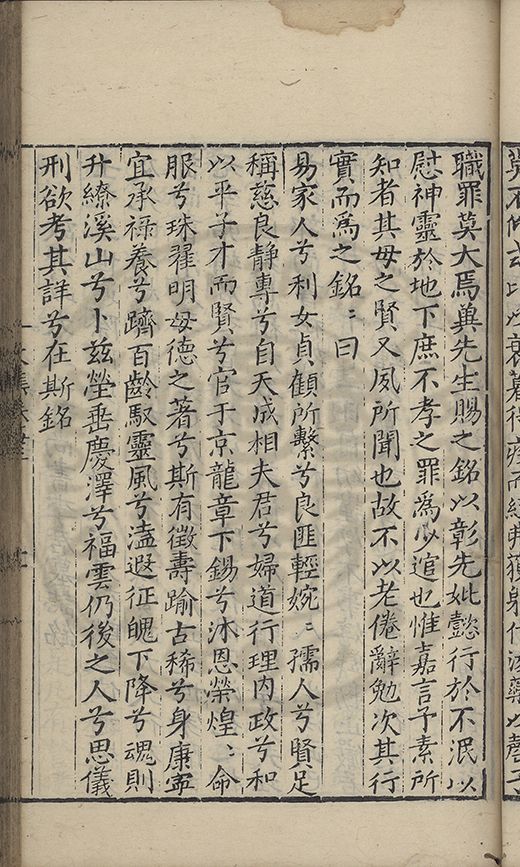 職罪莫大焉冀先生賜之銘以彰先妣懿行於不泯以
慰神靈於地下庶不孝之罪爲少逭也惟嘉言予素所
知者其母之賢又夙所聞也故不以老倦辭勉次其行
實而爲之銘：曰
易家人兮利女貞顧所繫兮良匪輕婉：孺人兮賢足
稱慈良靜專兮自天成相夫君兮婦道行理内政兮和
以平子才而賢兮官于京龍章下錫兮沐恩榮煌：命
服兮珠翟明母德之著兮斯有徵壽踰古稀兮身康寧
宜承祿養兮躋百齡馭靈風兮溘遐征魄下降兮魂則
升繚溪山兮卜茲塋垂慶澤兮福雲仍後之人兮思儀
刑欲考其詳兮在斯銘